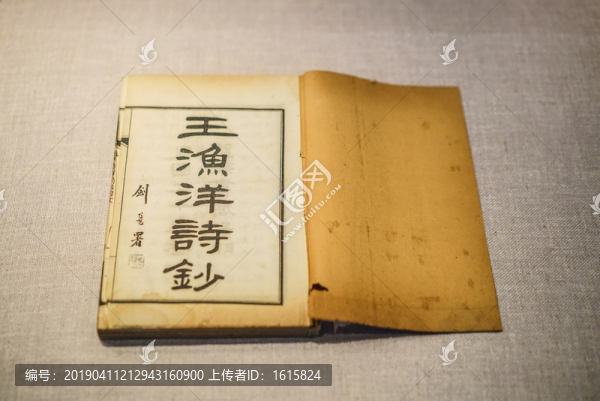 王漁洋詩鈔
劍
署
汇图网
www.huitu.com
编号：20190411212943160900 上传者ID：1615824